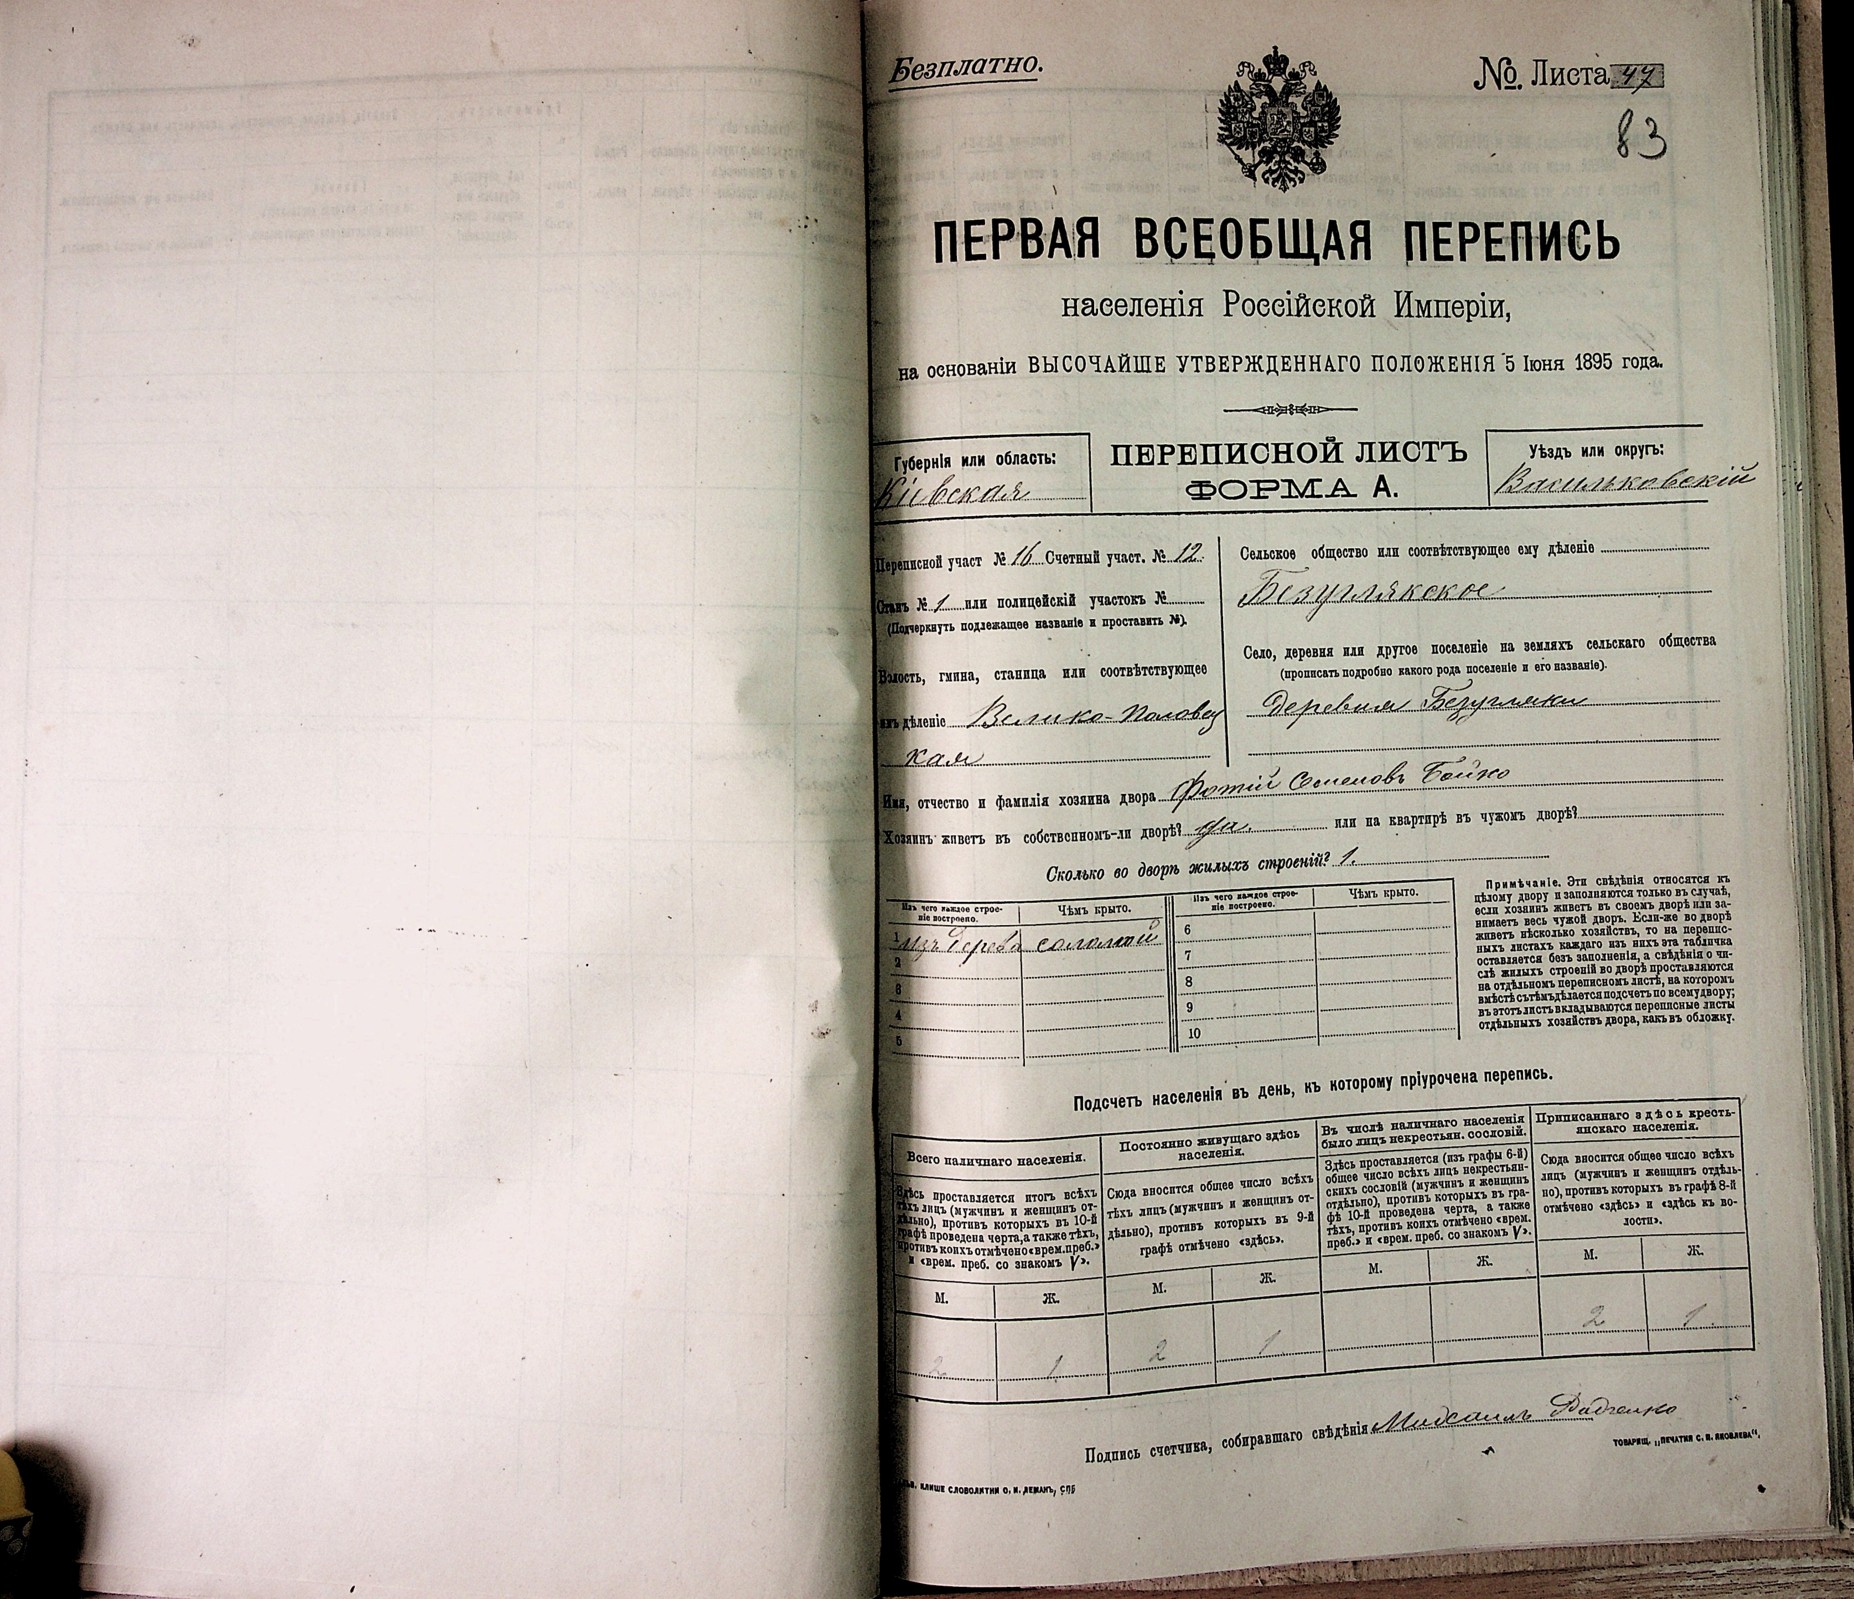 Безплатно.
№. Листа 47
83
ПЕРВАЯ ВСЕОБЩАЯ ПЕРЕПИСЬ
населенія Россійской Имперіи,
на основаніи ВЫСОЧАЙШЕ УТВЕРЖДЕННАГО ПОЛОЖЕНІЯ 5 Іюня 1895 года.
Губернія или область:
Кіевская
ПЕРЕПИСНОЙ ЛИСТЪ
ФОРМА А.
Уѣздъ или округъ:
Васильковскій
Переписной участ № 16 Счетный участ. № 12.
Станъ № 1 или полицейскій участокъ №
(Подчеркнуть подлежащее названіе и проставить №).
Волость, гмина, станица или соотвѣтствующее
имъ дѣленіе Велико-Половец
кая
Сельское общество или соотвѣтствующее ему дѣленіе
Безуглякское
Село, деревня или другое поселеніе на земляхъ сельскаго общества
(прописать подробно какого рода поселеніе и его названіе).
деревня Безугляки
Имя, отчество и фамилія хозяина двора Фотій Семеновъ Бойко
Хозяинъ живетъ въ собственномъ-ли дворѣ? да. или на квартирѣ въ чужомъ дворѣ?
Сколько во дворѣ жилыхъ строеній? 1.
Изъ чего каждое строе-
ніе построено.
Чѣмъ крыто.
Изъ чего каждое строе-
ніе построено.
Чѣмъ крыто.
1 изъ дерева соломой
2
3
4
5
6
7
8
9
10
Примѣчаніе. Эти свѣдѣнія относятся къ
цѣлому двору и заполняются только въ случаѣ,
если хозяинъ живетъ въ своемъ дворѣ или за-
нимаетъ весь чужой дворъ. Если-же во дворѣ
живетъ нѣсколько хозяйствъ, то на перепис-
ныхъ листахъ каждаго изъ нихъ эта табличка
оставляется безъ заполненія, а свѣдѣнія о чи-
слѣ жилыхъ строеній во дворѣ проставляются
на отдѣльномъ переписномъ листѣ, на которомъ
вмѣстѣ съ тѣмъ дѣлается подсчетъ по всему двору;
въ этотъ листъ вкладываются переписные листы
отдѣльныхъ хозяйствъ двора, какъ въ обложку.
Подсчетъ населенія въ день, къ которому пріурочена перепись.
Всего наличнаго населенія.
Здѣсь проставляется итогъ всѣхъ
тѣхъ лицъ (мужчинъ и женщинъ от-
дѣльно), противъ которыхъ въ 10-й
графѣ проведена черта, а также тѣхъ,
противъ коихъ отмѣчено «врем. преб.»
и «врем. преб. со знакомъ V».
М. Ж.
2 1
Постоянно живущаго здѣсь
населенія.
Сюда вносится общее число всѣхъ
тѣхъ лицъ (мужчинъ и женщинъ от-
дѣльно), противъ которыхъ въ 9-й
графѣ отмѣчено «здѣсь».
М. Ж.
2 1
Въ числѣ наличнаго населенія
было лицъ некрестьян. сословій.
Здѣсь проставляется (изъ графы 6-й)
общее число всѣхъ лицъ некрестьян-
скихъ сословій (мужчинъ и женщинъ
отдѣльно), противъ которыхъ въ гра-
фѣ 10-й проведена черта, а также
тѣхъ, противъ коихъ отмѣчено «врем.
преб.» и «врем. преб. со знакомъ V».
М. Ж.
Приписаннаго здѣсь кресть-
янскаго населенія.
Сюда вносится общее число всѣхъ
лицъ (мужчинъ и женщинъ отдѣль-
но), противъ которыхъ въ графѣ 8-й
отмѣчено «здѣсь» и «здѣсь къ во-
лости».
М. Ж.
2 1.
Подпись счетчика, собиравшаго свѣдѣнія Михаилъ Радченко
КЛИШЕ СЛОВОЛИТНИ О. И. ЛЕМАНЪ, СПБ
ТОВАРИЩ. „ПЕЧАТНЯ С. П. ЯКОВЛЕВА".